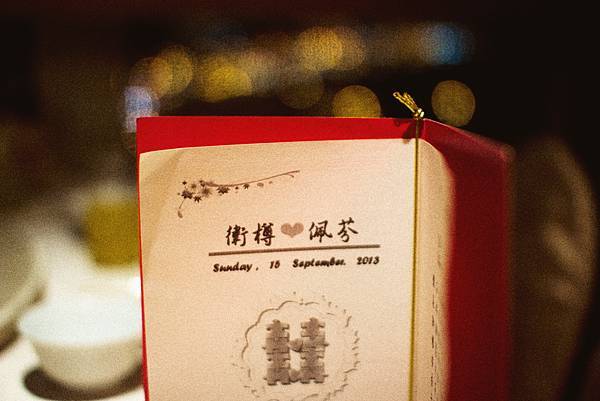 衛樽❤佩芬
Sunday, 15 September. 2013
囍